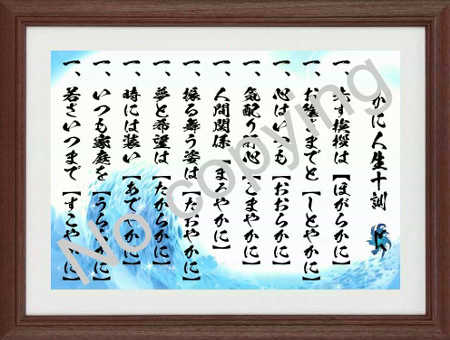 かに人生十訓
一、先ず挨拶は【ほがらかに】
一、お までと【しとやかに】
一、心はいつも【おおらかに】
一、気配り 心【こまやかに】
一、人間関係【まろやかに】
一、振る舞う姿は【たおやかに】
一、夢と希望は【たからかに】
一、時には装い【あでやかに】
一、いつも家庭を【うららかに】
一、若さいつまで【すこやかに】
No copying